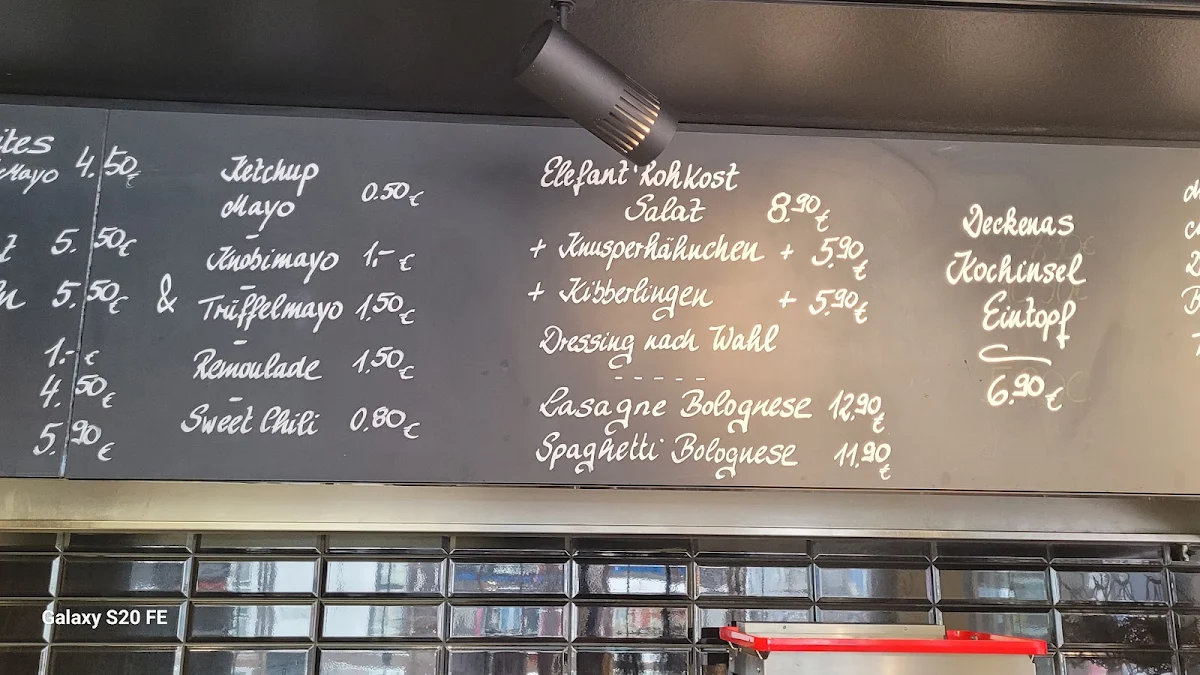 4.50€
5.50€
5.50€
1.- €
4.50€
5.90€
&
Ketchup
Mayo 0.50€
-
Knobimayo 1.- €
-
Trüffelmayo 1,50€
-
Remoulade 1,50€
-
Sweet Chili 0.80€
Elefant Rohkost
Salat 8.90€
+ Knusperhähnchen + 5.90€
+ Kibberlingen + 5.90€
Dressing nach Wahl
- - - - - -
Lasagne Bolognese 12.90€
Spaghetti Bolognese 11.90€
Deckenas
Kochinsel
Eintopf
6.90€
Galaxy S20 FE